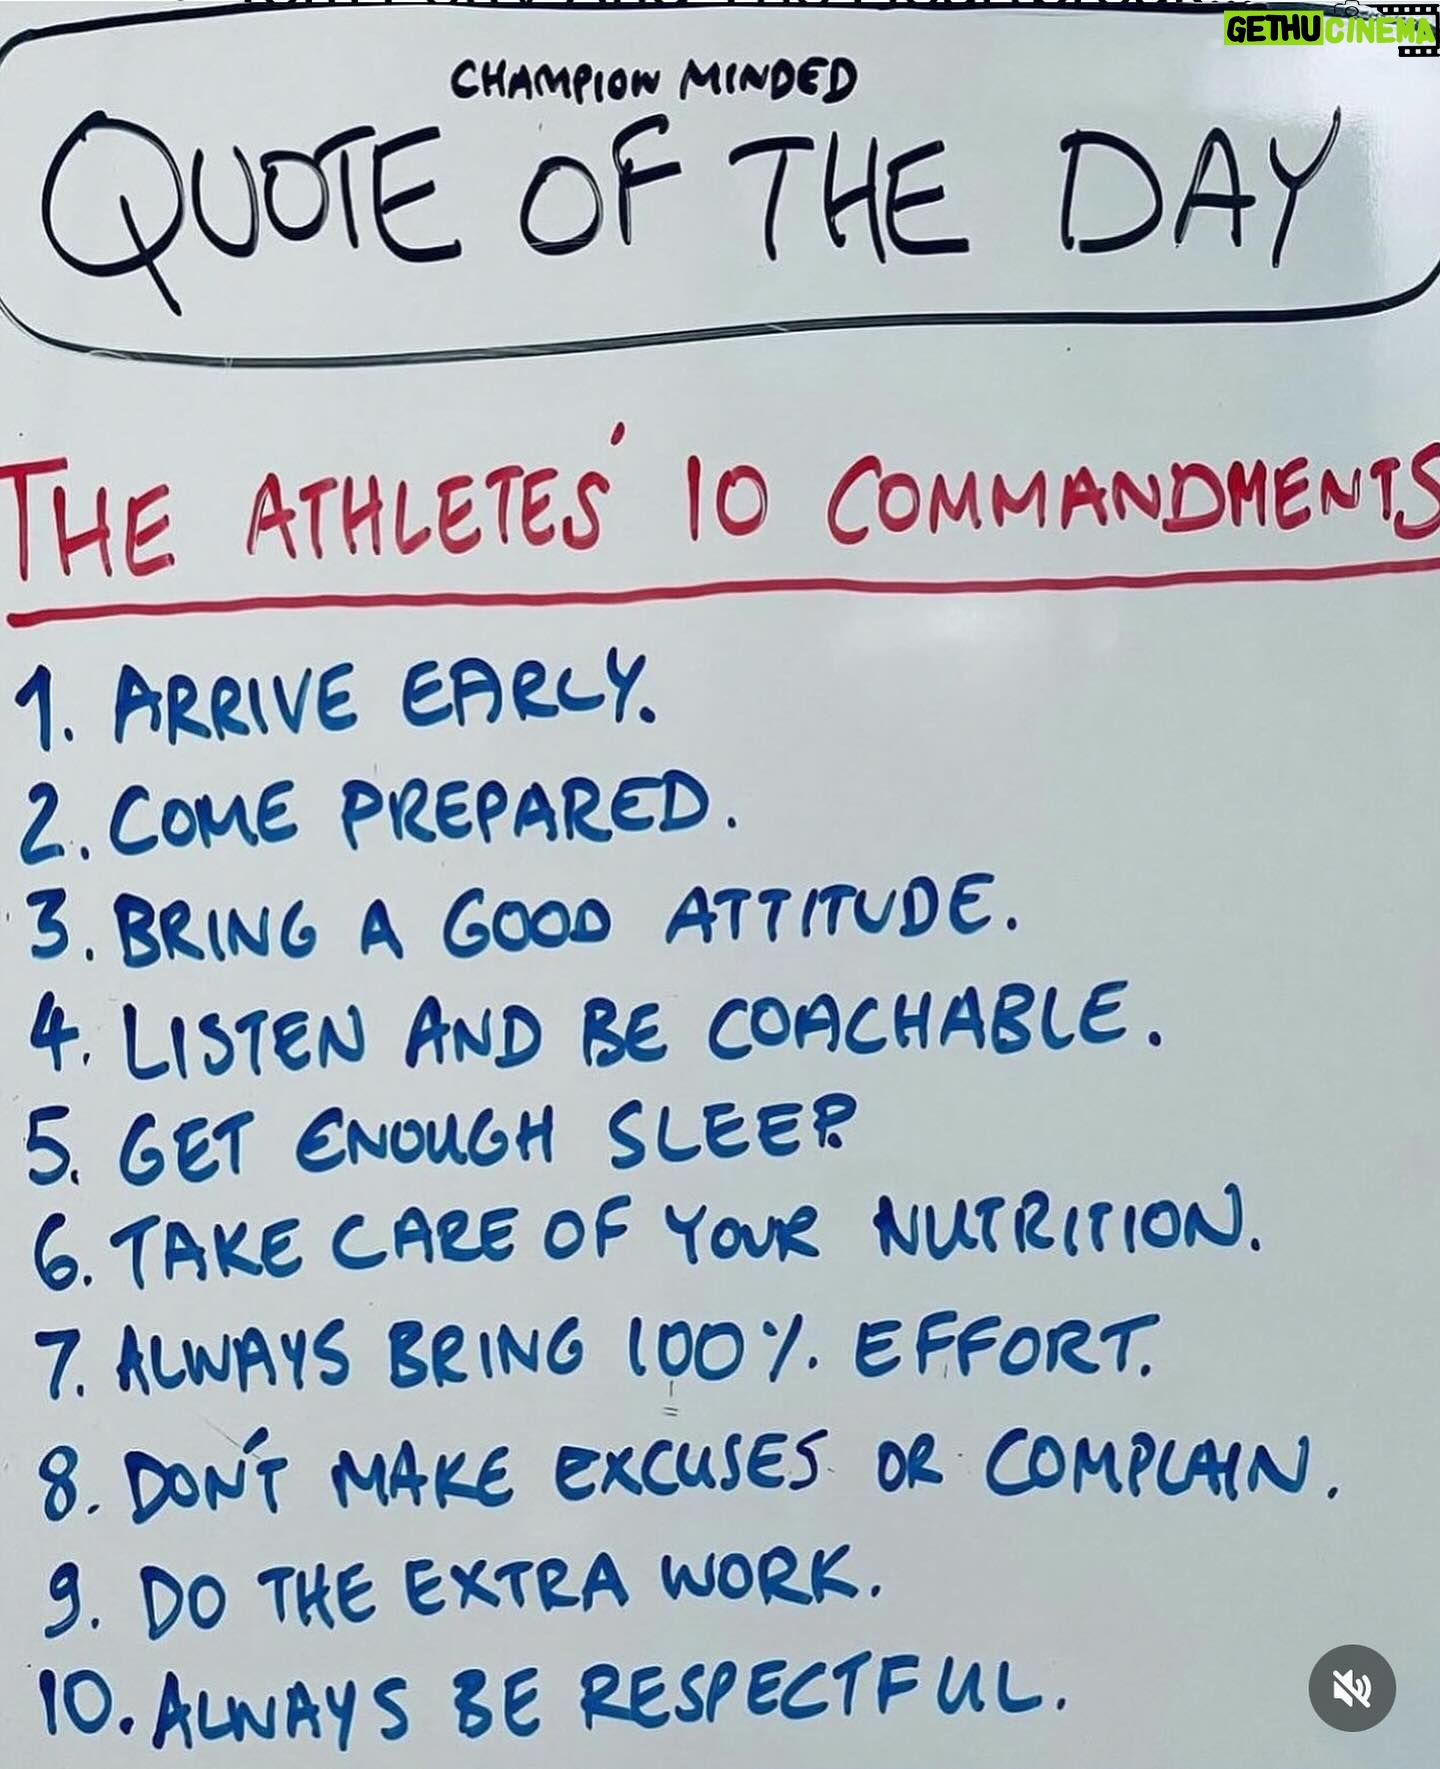 GETHUCINEMA
CHAMPION MINDED
QUOTE OF THE DAY
THE ATHLETES' 10 COMMANDMENTS
1. ARRIVE EARLY.
2. COME PREPARED.
3. BRING A GOOD ATTITUDE.
4. LISTEN AND BE COACHABLE.
5. GET ENOUGH SLEEP.
6. TAKE CARE OF YOUR NUTRITION.
7. ALWAYS BRING 100% EFFORT.
8. DON'T MAKE EXCUSES OR COMPLAIN.
9. DO THE EXTRA WORK.
10. ALWAYS BE RESPECTFUL.